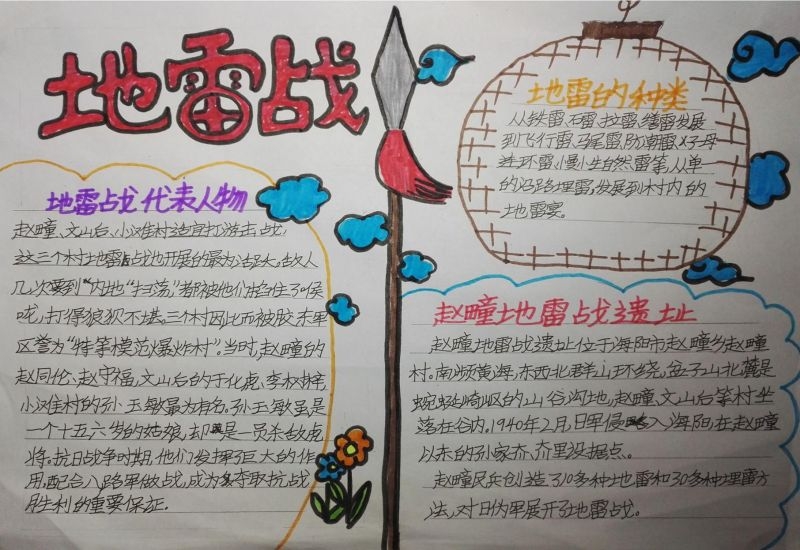 地雷战
地雷战代表人物
赵疃、文山后、小滩村适宜打游击战,
这三个村地雷战也开展的最为活跃。敌人
几次要到“内地”扫荡,”都被他们掐住了喉
咙,打得狼狈不堪。三个村因此而被胶东军
区誉为“特等模范爆炸村”。当时,赵疃的
赵同伦、赵守福,文山后的于化虎、
小滩村的孙玉敏最为有名。孙玉敏虽是
一个十五六岁的姑娘,却是一员杀敌虎
将。抗日战争时期,他们发挥了巨大的作
用,配合八路军做战,成为夺取抗战
胜利的重要保证.
地雷的种类
从铁雷、石雷、拉雷、绊雷发展
到飞行雷、马尾雷、防潮雷、子母
连环雷、慢性自然雷等,从单一
的沿路埋雷,发展到村内的
地雷宴。
赵疃地雷战遗址
赵疃地雷战遗址位于海阳市赵疃乡赵疃
村。南频黄海,东西北群山环绕,盆子山北麓是
蜿蜒崎岖的山谷沟地,赵疃、文山后等村坐
落在谷内。1940年2月,日军侵入海阳,在赵疃
以东的孙家夼、夼里设据点、
赵疃民兵创造了10多种地雷和30多种埋雷方
法,对日伪军展开了地雷战。